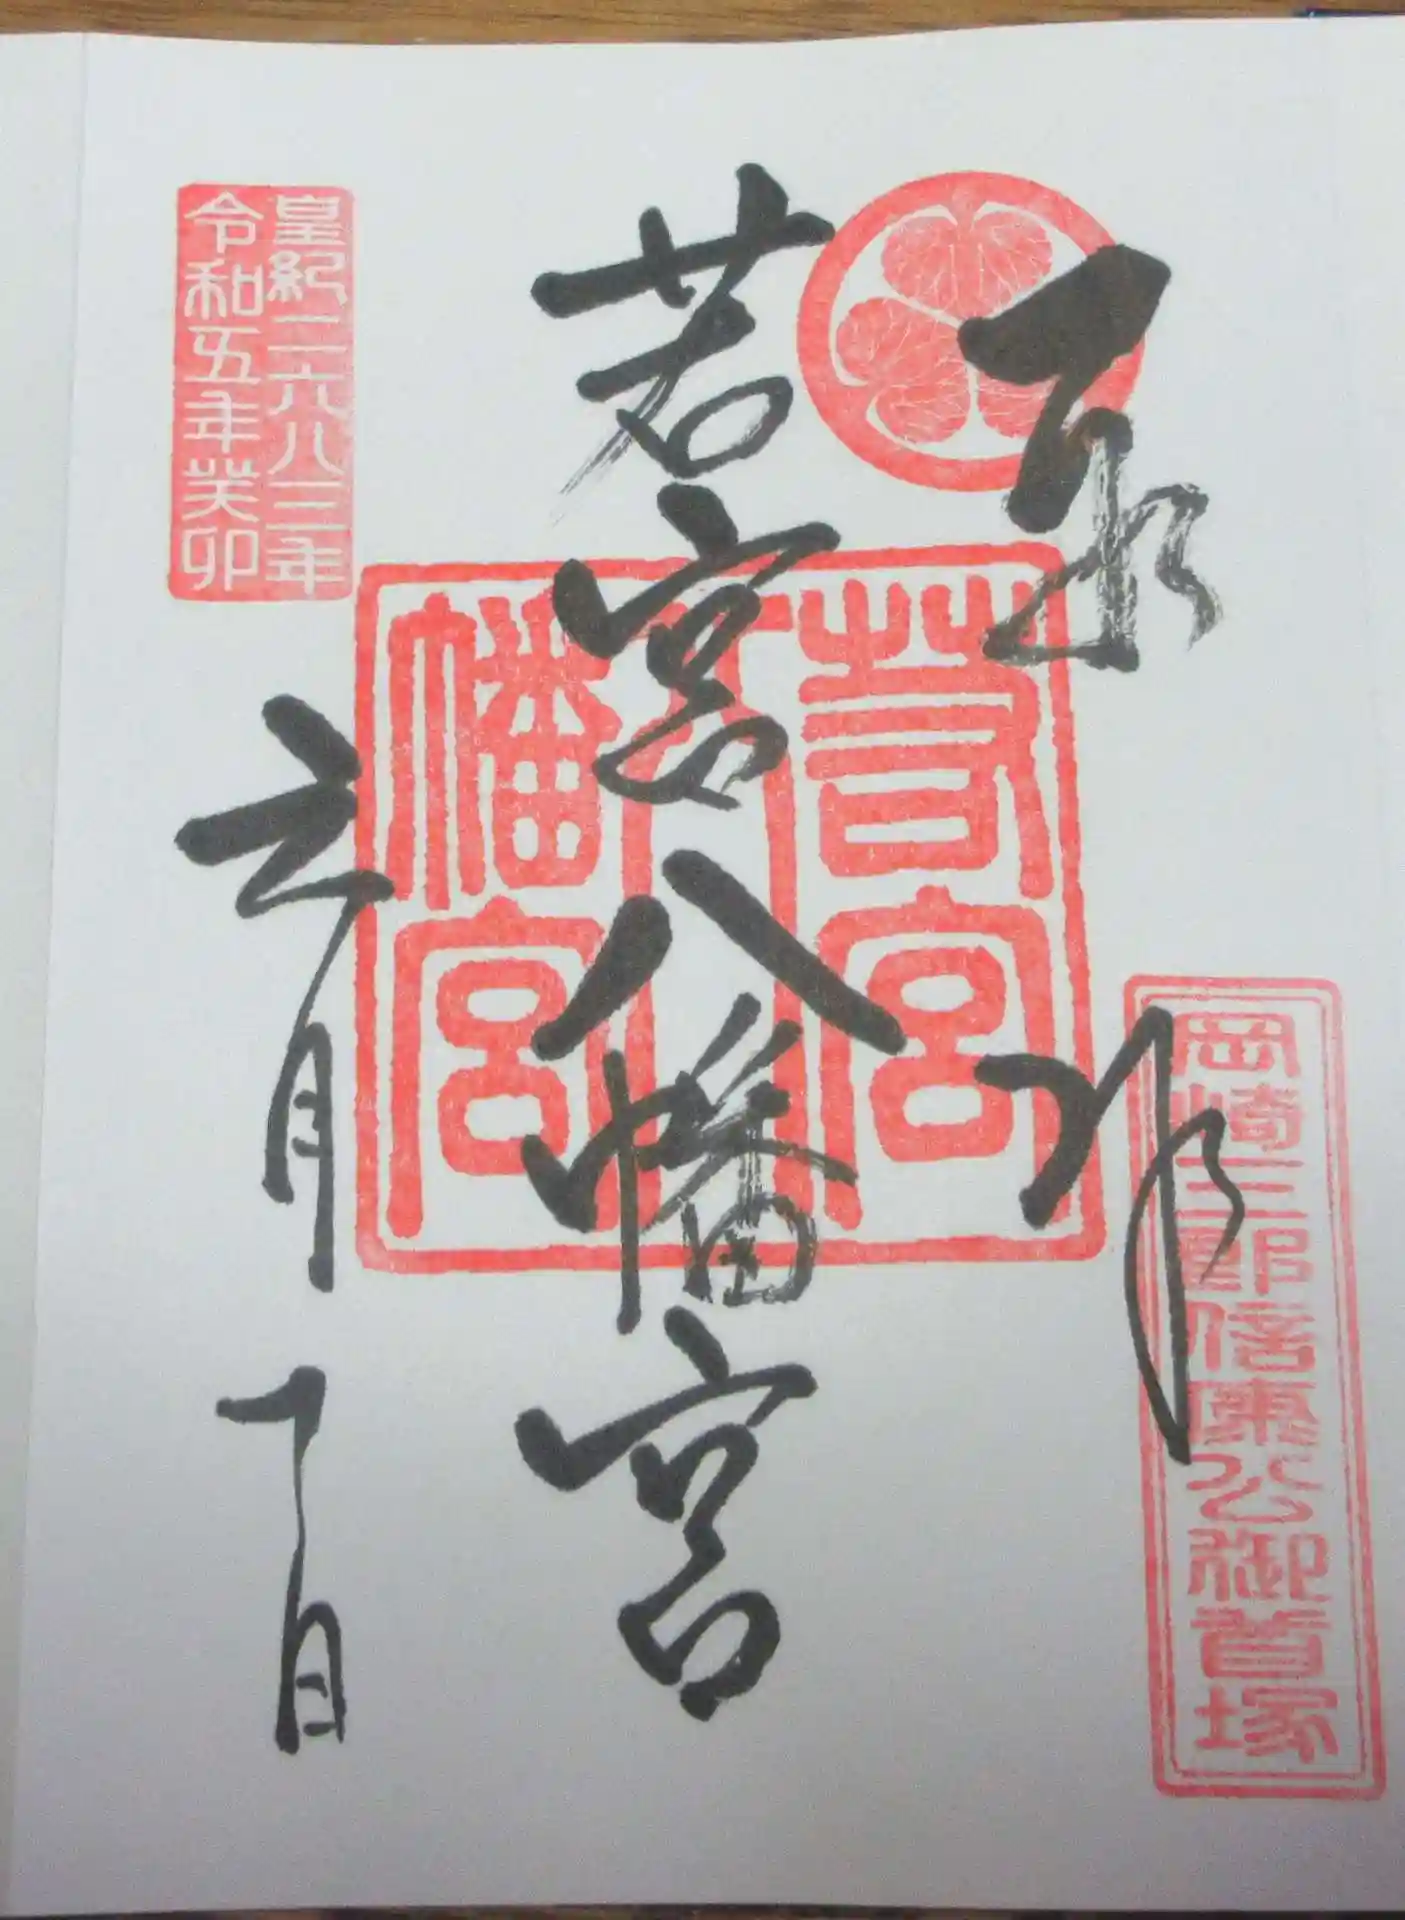 奉拝
岡崎三郎信康公御首塚
若宮八幡宮
若宮
八
幡宮
皇紀二六八三年
令和五年癸卯
六月一日